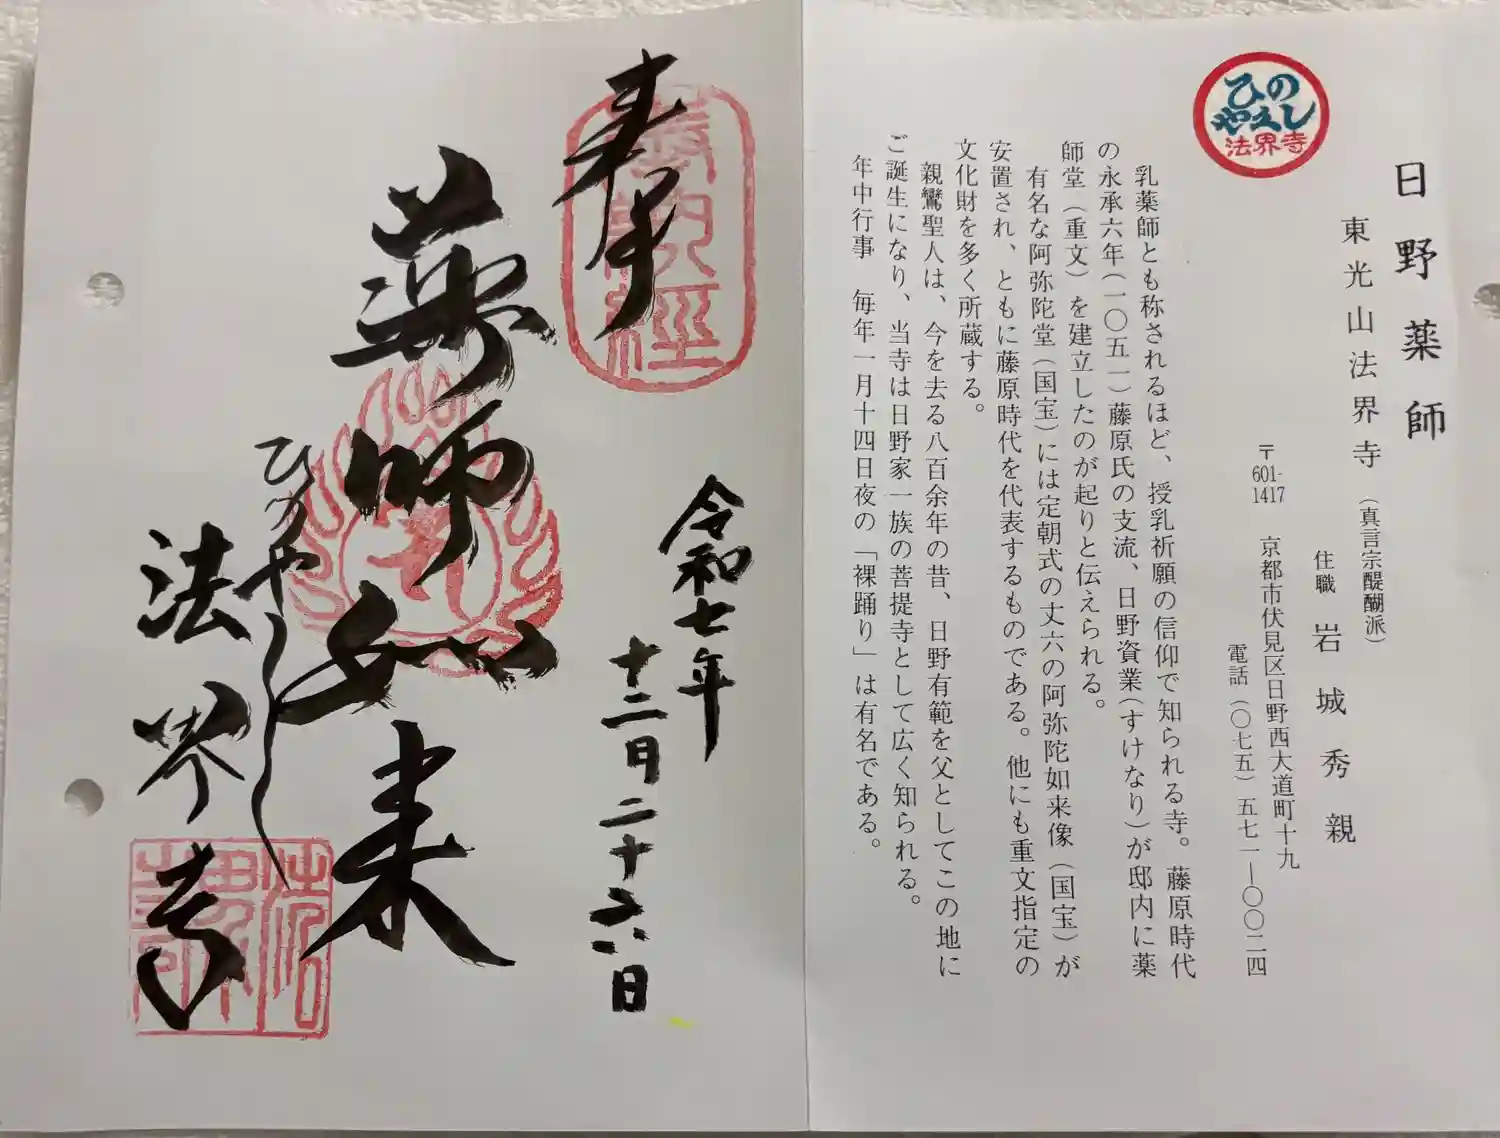 日野薬師
東光山法界寺（真言宗醍醐派）
住職 岩城秀親
〒601-1417 京都市伏見区日野西大道町十九
電話（〇七五）五七一―〇〇二四
ひの
やくし
法界寺
乳薬師とも称されるほど、授乳祈願の信仰で知られる寺。藤原時代
の永承六年（一〇五一）藤原氏の支流、日野資業（すけなり）が邸内に薬
師堂（重文）を建立したのが起りと伝えられる。
有名な阿弥陀堂（国宝）には定朝式の丈六の阿弥陀如来像（国宝）が
安置され、ともに藤原時代を代表するものである。他にも重文指定の
文化財を多く所蔵する。
親鸞聖人は、今を去る八百余年の昔、日野有範を父としてこの地に
ご誕生になり、当寺は日野家一族の菩提寺として広く知られる。
年中行事 毎年一月十四日夜の「裸踊り」は有名である。
奉拝
令和七年
十二月二十六日
薬師如来
ひのやくし
法界寺
法界寺